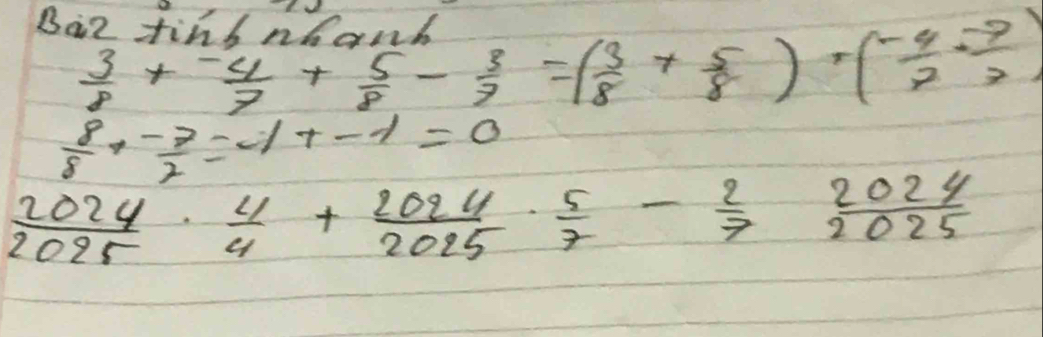 Bài 2 tính nhanh
3/8 + -4/7 + 5/8 - 3/7 = (3/8 + 5/8) + (-4/7 - 3/7)
8/8 + -7/7 = 1 + -1 = 0
2024/2025 . 4/4 + 2024/2025 . 5/7 - 2/7 2024/2025